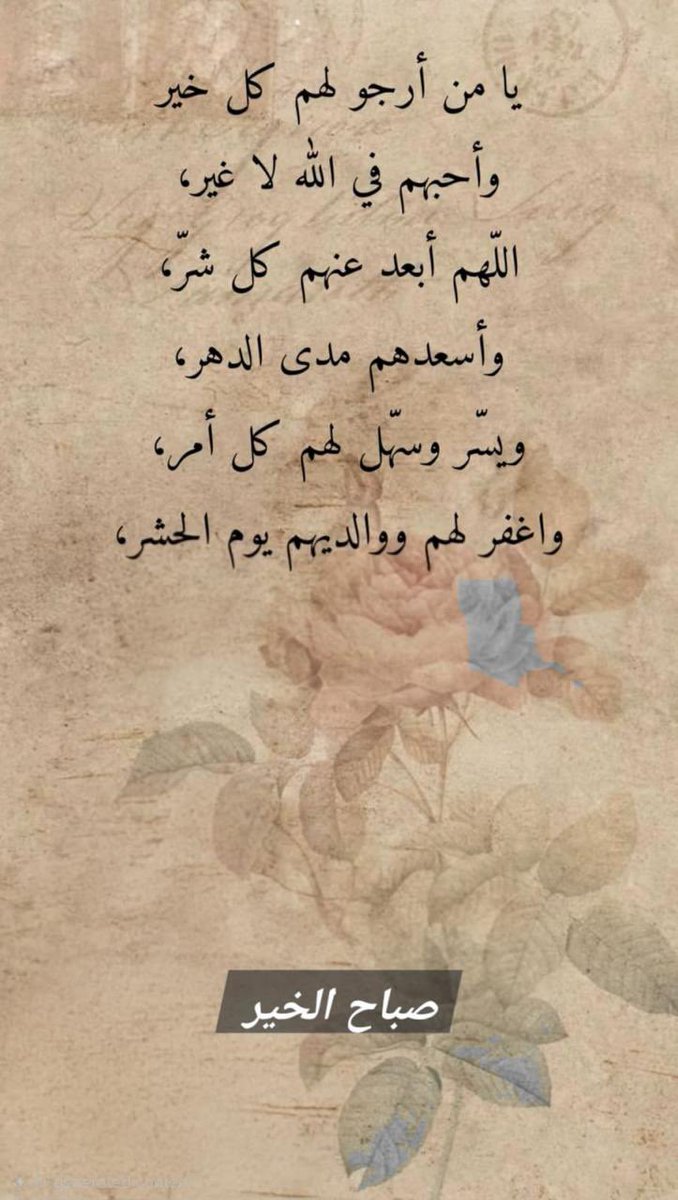 يا من أرجو لهم كل خير
وأحبهم في الله لا غير،
اللّهم أبعد عنهم كل شرّ،
وأسعدهم مدى الدهر،
ويسّر وسهّل لهم كل أمر،
واغفر لهم ووالديهم يوم الحشر،
صباح الخير